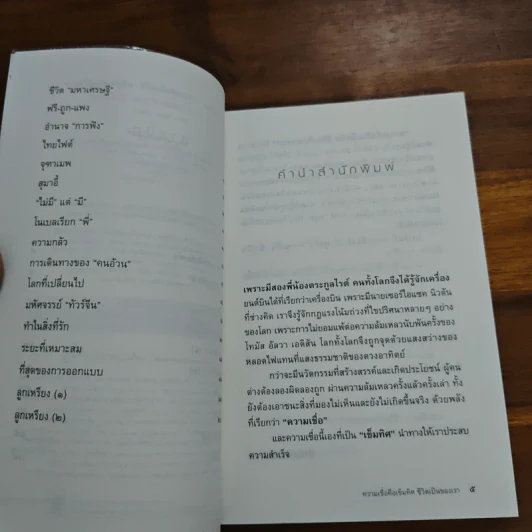 ชีวิต "มหาเศรษฐี"
ฟรี-ถูก-แพง
อำนาจ "การฟัง"
ไทยไฟต์
จุฑาเมพ
สูมาอี้
"ไม่มี" แต่ "มี"
โนเบลเรียก "พี่"
ความกลัว
การเดินทางของ "คนอ้วน"
โลกที่เปลี่ยนไป
มหัศจรรย์ "ทัวร์จีน"
ทำในสิ่งที่รัก
ระยะที่เหมาะสม
ที่สุดของการออกแบบ
ลูกเหรียง (๑)
ลูกเหรียง (๒)
คำนำสำนักพิมพ์
เพราะมีสองพี่น้องตระกูลไรต์ คนทั้งโลกจึงได้รู้จักเครื่อง
ยนต์บินได้ที่เรียกว่าเครื่องบิน เพราะมีนายเซอร์ไอแซค นิวตัน
ที่ช่างคิด เราจึงรู้จักกฎแรงโน้มถ่วงที่ไขปริศนาหลายๆ อย่าง
ของโลก เพราะการไม่ยอมแพ้ต่อความล้มเหลวนับพันครั้งของ
โทมัส อัลวา เอดิสัน โลกทั้งโลกจึงถูกจุดด้วยแสงสว่างของ
หลอดไฟแทนที่แสงธรรมชาติของดวงอาทิตย์
กว่าจะมีนวัตกรรมที่สร้างสรรค์และเกิดประโยชน์ ผู้คน
ต่างต้องลองผิดลองถูก ผ่านความล้มเหลวครั้งแล้วครั้งเล่า ทั้ง
ยังต้องเอาชนะสิ่งที่มองไม่เห็นและยังไม่เกิดขึ้นจริง ด้วยพลัง
ที่เรียกว่า "ความเชื่อ"
และความเชื่อนี้เองที่เป็น "เข็มทิศ" นำทางให้เราประสบ
ความสำเร็จ
ความเชื่อคือเข็มทิศ ชีวิตเป็นของเรา ๕